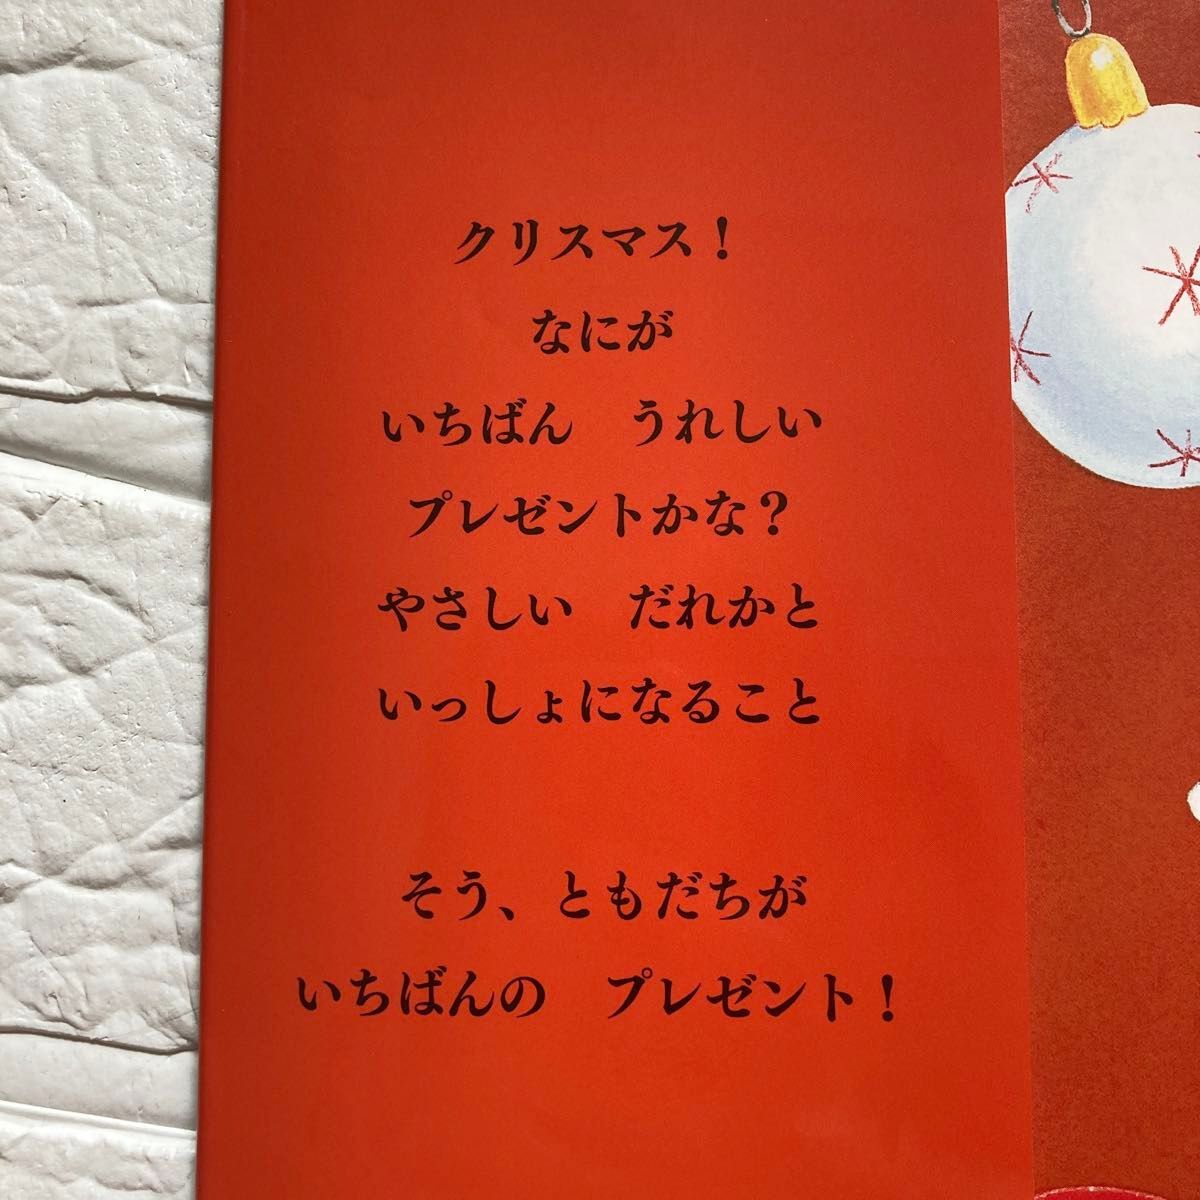 クリスマス！
なにが
いちばん　うれしい
プレゼントかな？
やさしい　だれかと
いっしょになること
そう、ともだちが
いちばんの　プレゼント！